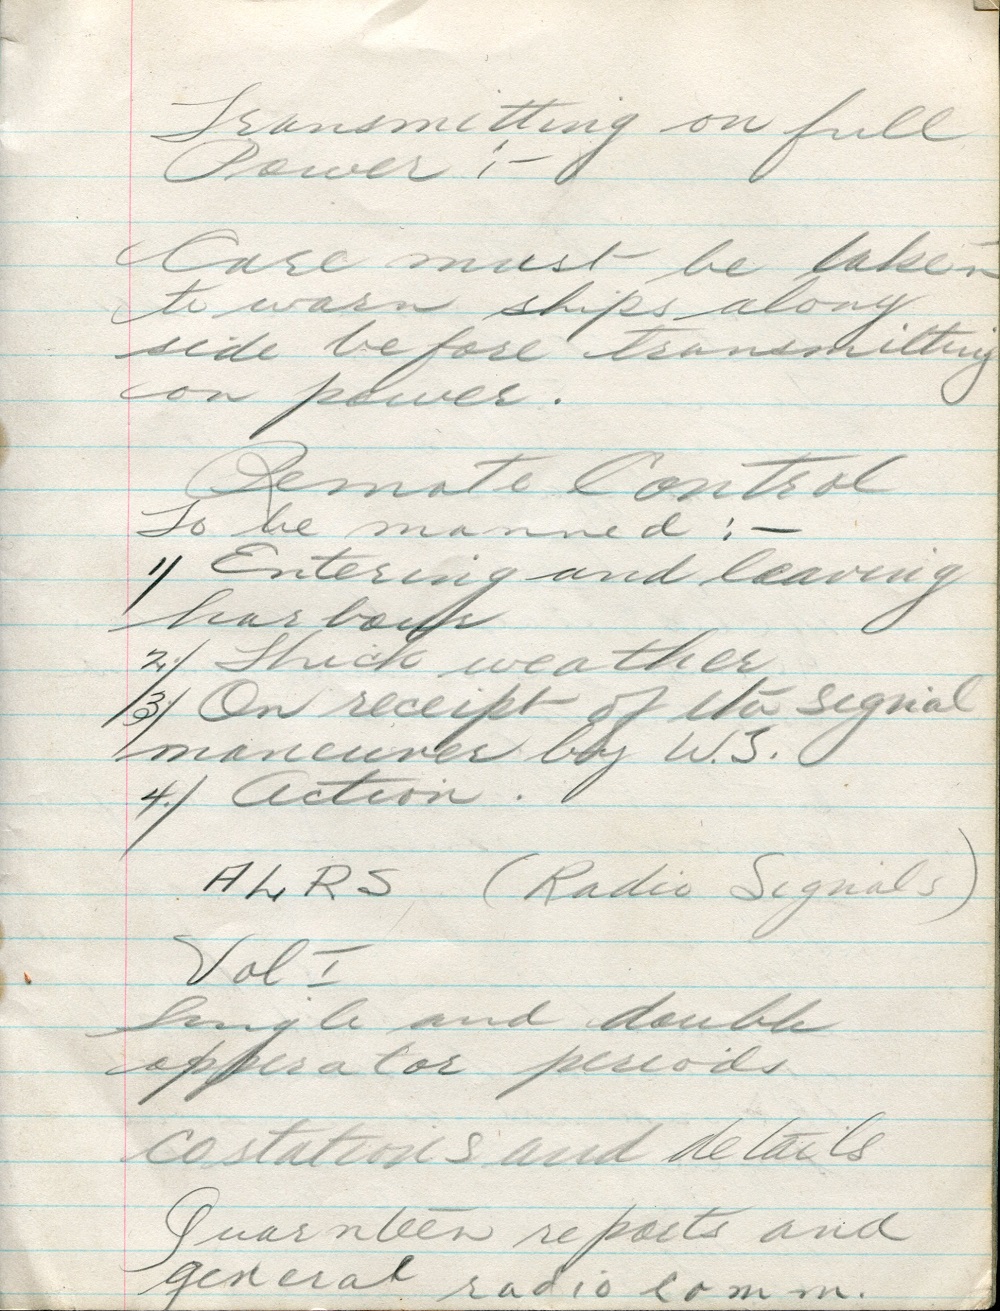 Transmitting on full
Power :-
Care must be taken
to warn ships along
side before transmitting
on power.
Remote Control
To be manned :-
1/ Entering and leaving
harbour
2/ Thick weather
3/ On receipt of the signal
maneuver by W.S.
4/ Action.
ALRS (Radio Signals)
Vol I
Single and double
opperator periods
costations and details
Quarnteen reports and
general radio comm.